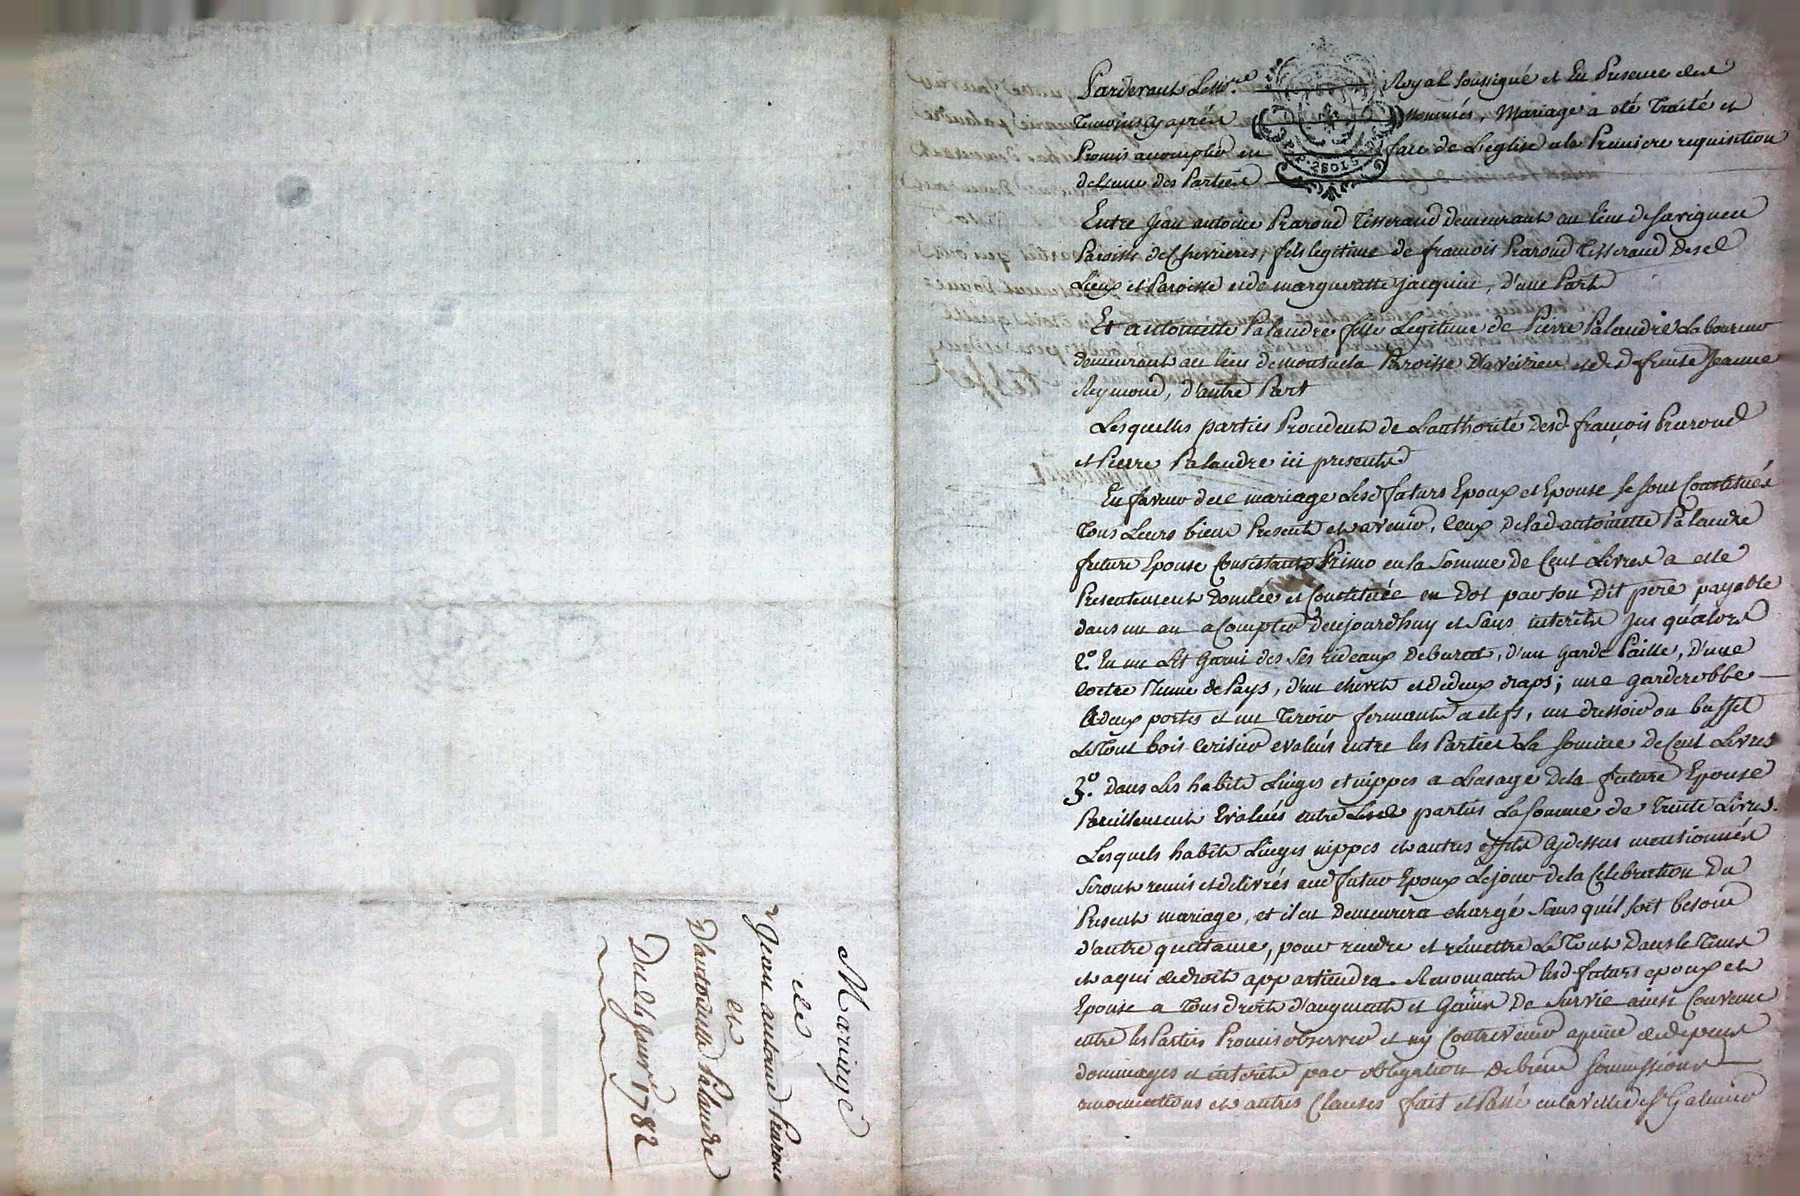 Mariage
de
Jean antoine Praroud
et
D'antoinette Palandre
Du 26 Janr. 1782
Pardevant Le No.re Royal soussigné et En Presence des
Temoins cy après nommés, Mariage a oté Traité et
Promis accomplir en face de L'eglise a la Premiere requisition
de L'une des Parties
Entre Jean antoine Praroud Tisserand demeurant au lieu de Savigneu
Paroisse de Chevrieres, fils legitime de françois Praroud Tisserand Desd
Lieux et Paroisse et de margueritte Jacquin, d'une Part
Et antoinette Palandre fille Legitime de Pierre Palandre Laboureur
demeurant au lieu de Paroisse D'aveizieu et de defunte Jeanne
Reymond, d'autre Part
Lesquelles parties Procedent de L'authorité Desd. françois Praroud
et Pierre Palandre ici presents
En faveur de ce mariage Lesd futurs Epoux et Epouse se sont Constitués
Tous Leurs biens Presents et avenir, Ceux de lad antoinette Palandre
future Epouse Consistants Primo en la Somme de Cent Livres a elle
Presentement donnée et Constituée en Dot par son Dit pere payable
dans un an a Compter d'eujourdhuy et Sans interets jus qu'alors
2.º En un Lit Garni des Ses rideaux De burat, d'un Garde Paille, d'une
Coetre Plume de Pays, d'un chevet et de deux draps; une garderobbe
A deux portes et un Tiroir fermants a clefs, un dressoir ou buffet
Le Tout bois Cerisier evalués entre les Parties La Somme de Cent Livres
3.º dans Les habits Linges et nippes a L'usage De la future Epouse
Pareillement Evalués entre Lesd parties La Somme de Trente Livres.
Lesquels habits Linges nippes et autres effets Cy dessus mentionnés
Seront remis et delivrés aud futur Epoux Le jour de la Celebration Du
Present mariage, et il en Demeurera chargé Sans qu'il soit besoin
d'autre quittance, pour rendre et remettre Le Tout Dans le Tems
et a qui de droit appartiendra. Renonçants lesd. futurs epoux et
Epouse a Tous droits d'augment et Gains De Survie ainsi Convenu
entre les Parties Promis observer et ny Contrevenir a peine de depens
dommages et interets par obligation De biens Soumissions
renonciations et autres Clauses fait et Passé en la ville de St Galmier
2 SOLS
Pascal